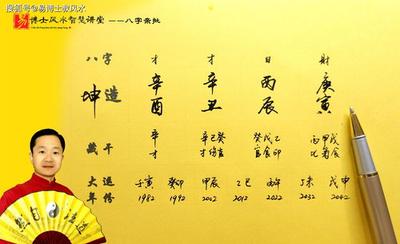 搜狐号@易博士教风水
易 博士风水智慧讲堂——八字案批
八字 才 才 日 財
坤造 辛酉 辛丑 丙辰 庚寅
藏干 辛 辛己癸 癸戊乙 丙甲戊
才 才伤官 官食印 比枭食
大運 壬寅 癸卯 甲辰 乙巳 丙午 丁未 戊申
年份 1982 1992 2002 2012 2022 2032 2042